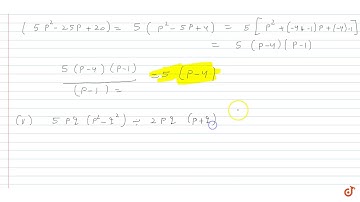 ( 5p²-25p+20) = 5 ( p²-5p+4) = 5 [ p²+(-4-1)p+(-4)(-1)]
= 5 (p-4)(p-1)
5(p-4)(p-1) / (p-1) = = 5 (p-4)
(v) 5pq (p²-q²) ÷ 2pq (p+q)